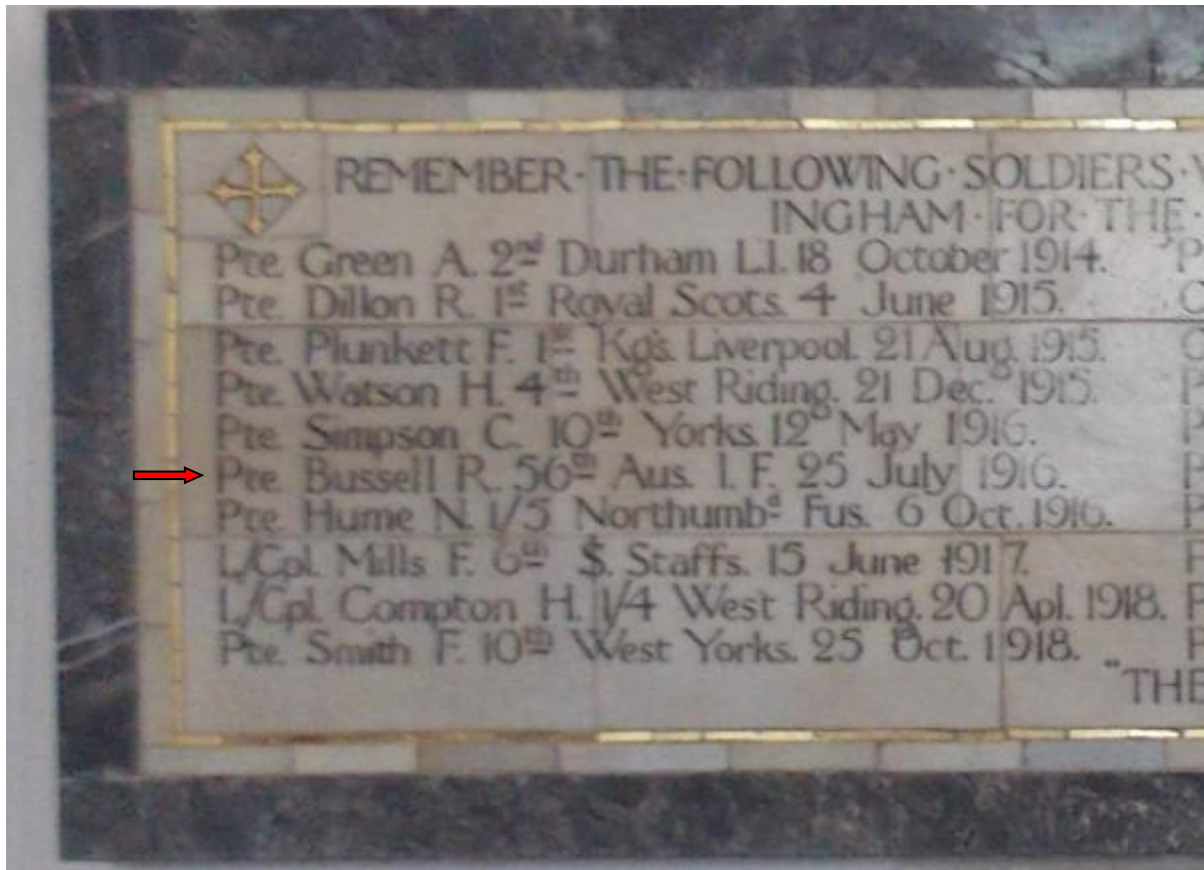 REMEMBER·THE·FOLLOWING·SOLDIERS·
INGHAM·FOR·THE·
Pte. Green A. 2nd Durham L.I. 18 October 1914.
Pte. Dillon R. 1st Royal Scots. 4 June 1915.
Pte. Plunkett F. 1st Kg's. Liverpool. 21 Aug. 1915.
Pte. Watson H. 4th West Riding. 21 Dec. 1915.
Pte. Simpson C. 10th Yorks. 12 May 1916.
Pte. Bussell R. 56th Aus. I. F. 25 July 1916.
Pte. Hume N. 1/5 Northumbd Fus. 6 Oct. 1916.
L/Cpl. Mills F. 6th S. Staffs. 15 June 1917.
L/Cpl. Compton H. 1/4 West Riding. 20 Apl. 1918.
Pte. Smith F. 10th West Yorks. 25 Oct. 1918.
"THE